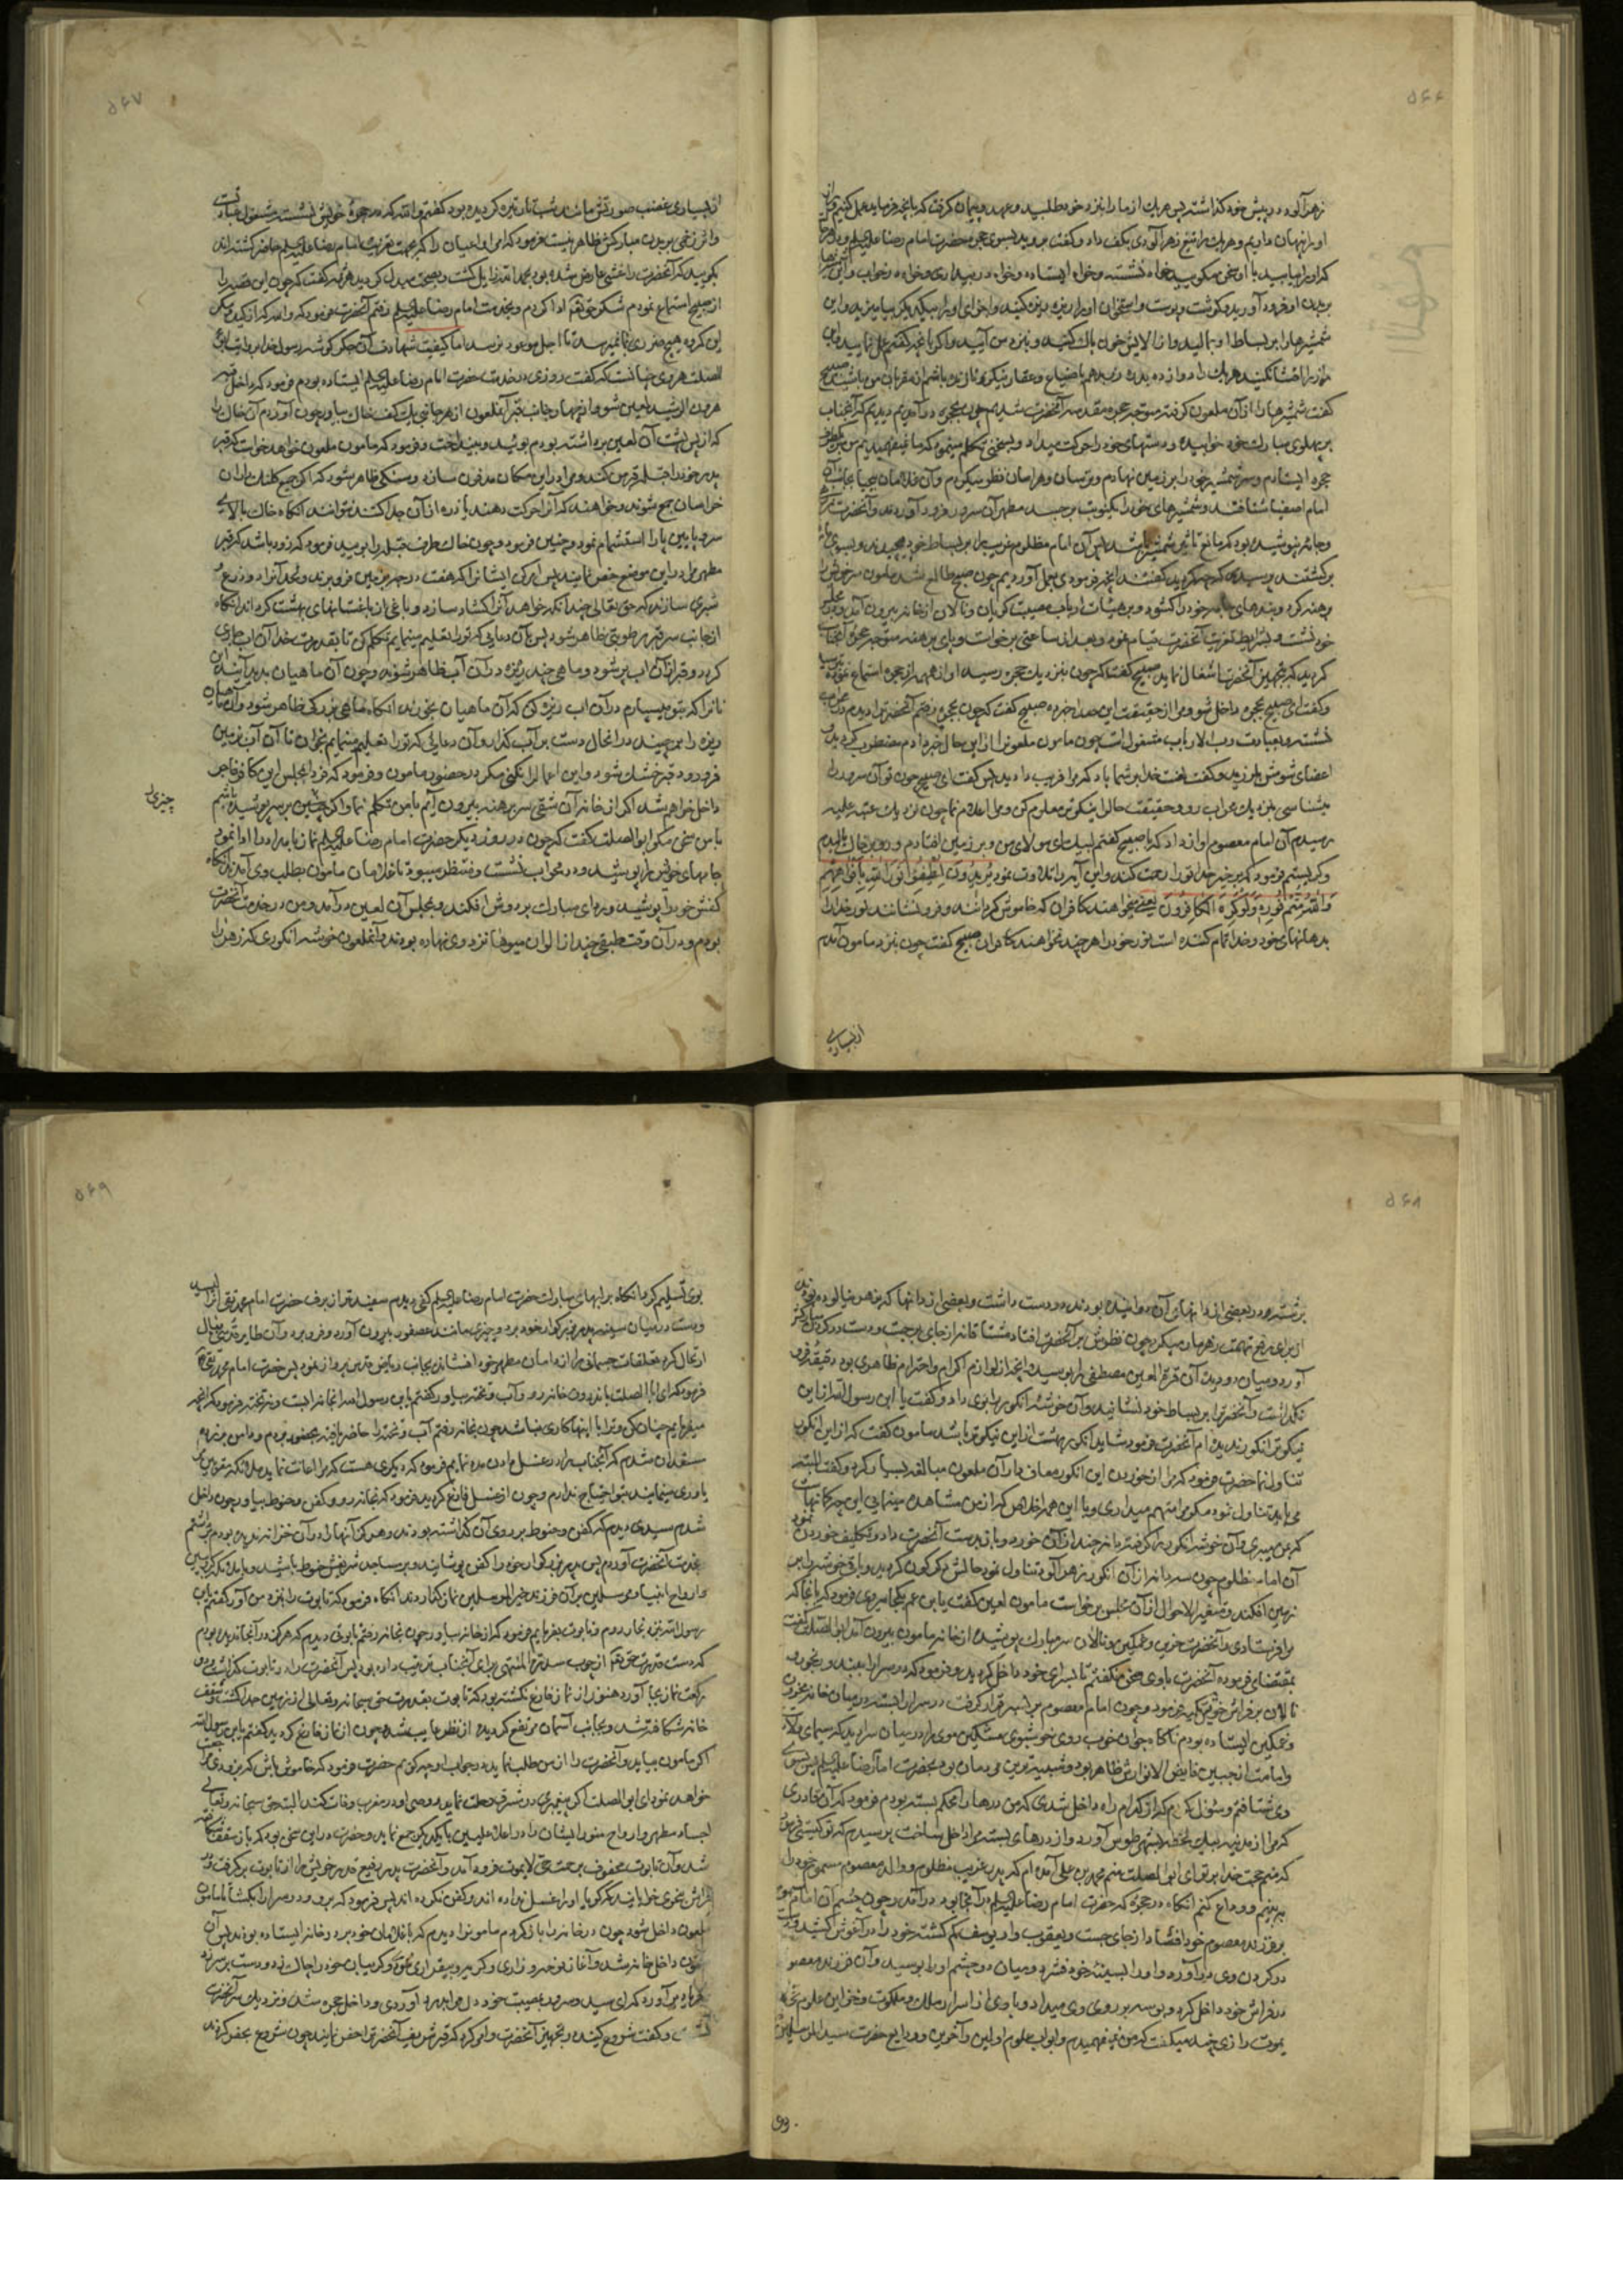 ۵۶۶
زهرآلود در پیش خود گذاشته پس هریک از ما را بنزد خود طلبید و عهد و پیمان گرفت که بآنچه فرماید عمل کنیم
او را پنهان داریم و هریک را تیغ زهرآلودی بکف داد و گفت بروید بسوی حجره حضرت امام رضا علیه السلم
که او را بیابید با او سخن مگویید خواه نشسته و خواه ایستاده و خواه در بیداری و خواه در خواب و این
بر بدن او فرود آورید و گوشت و پوست و استخوان او را ریزه ریزه کنید و اجزای او را بیکدیگر بیامیزید و این
شمشیرها را بر بساط او بمالید و از الایش خون پاک کنید و بنزد من آیید و اگر آنچه گفتم عمل نمایید و این
راز را افشا نکنید هریک را دوازده بدره زر بدهم با ضیاع و عقار نیکو و تا زنده باشم از مقربان من باشید صبیح
گفت شمشیرها را از آن ملعون گرفته متوجه حجره مقدسه آنحضرت شدیم چون بحجره درآمدیم دیدیم که آنجناب
بر پهلوی مبارک خود خوابیده و دستهای خود را حرکت میداد و بسخنی تکلم مینمود که ما نمیفهمیدیم من بر
حجره ایستادم و سر شمشیر خود را بر زمین نهادم و ترسان و هراسان نظر میکردم و آن غلامان بیحیا بجانب آن
امام اصفیا شتافتند و شمشیرهای خود را یکنوبت بر جسد مطهر آن سرور فرود آوردند و آنحضرت
و جامه نپوشیده بود که مانع تاثیر شمشیر باشد پس آن امام مظلوم غریب را بر بساط خود پیچیدند و بسوی
برگشتند و پرسید که چه کردید گفتند آنچه فرمودی بعمل آوردیم چون صبح طالع شد ملعون سر خود را
برهنه کرد و بندهای جامه خود را گشود و بر هیئات ارباب مصیبت گریان و نالان از خانه بیرون آمد و در مجلس
خود نشست و بشرایط تعزیت آنحضرت قیام نمود و بعد از ساعتی برخواست و پای برهنه متوجه حجره آنجناب
گردید که بتجهیز آنحضرت اشتغال نماید صبیح گفت که چون بنزدیک حجره رسید آواز همهمه از حجره استماع نمود
و گفت ای صبیح بحجره داخل شو و مرا از حقیقت این صدا خبر ده صبیح گفت که چون بحجره رفتم آنحضرت را دیدم در محراب
نشسته و بعبادت رب الارباب مشغول است چون مامون ملعون را از این حال خبر دادم مضطرب گردید و
اعضای شومش بلرزید و گفت لعنت خدا بر شما باد که مرا فریب دادید پس گفت ای صبیح چون تو آن سرور را
میشناسی بنزدیک محراب رو و حقیقت حال را نیکوتر معلوم کن و مرا اعلام نما چون نزدیک عتبه علیه
رسیدم آن امام معصوم آواز داد که یا صبیح گفتم لبیک ای مولای من و بر زمین افتادم و رو بر خاک مالیدم
و گریستم فرمود که برخیز خدا تو را رحمت کند و این آیه را تلاوت نمود یُریدُونَ لِیُطفِئُوا نُورَ اللّهِ بِأَفوٰاهِهِم
وَاللّهُ مُتِمُّ نُورِهِ وَلَو کَرِهَ الکٰافِرُونَ یعنی میخواهند کافران که خاموش گردانند و فرو نشانند نور خدا را
بدهانهای خود و خدا تمام کننده است نور خود را هر چند نخواهند کافران صبیح گفت چون بنزد مامون آمدم
از بسیاری
۵۶۷
از بسیاری غضب صورتش مانند شب تار تیره گردیده بود گفتم والله که در حجره خویش نشسته و مشغول عبادت
و اثر زخمی بر بدن مبارکش ظاهر نیست فرمود که امرا و اعیان را که بجهت تعزیت امام رضا علیه السلم حاضر گشته‌اند
بگویید که آنحضرت را غشی عارض شده بود بحمد الله زایل گشت و بصحت مبدل گردید هرثمه گفت که چون این قصه را
از صبیح استماع نمودم شکر حق تعالی ادا کردم و بخدمت امام رضا علیه السلم رفتم آنحضرت فرمود که والله که از کید و مکر
این گروه هیچ ضرری بما نمیرسد تا اجل موعود برسد اما کیفیت شهادت آن جگرگوشه رسول خدا بروایت ابو
الصلت هروی چنانست که گفت روزی در خدمت حضرت امام رضا علیه السلم ایستاده بودم فرمود که داخل قبه
هرون الرشید لعین شو و از چهار جانب قبر آنملعون از هر جانبی یک کف خاک بیاور چون آوردم آن خاک را
که از پس پشت آن لعین برداشته بودم بویید و بینداخت و فرمود که مامون ملعون خواهد خواست که قبر
پدر خود را قبله قبر من کند و مرا در این مکان مدفون سازد و سنگی ظاهر شود که اگر جمیع کلنگ‌داران
خراسان جمع شوند و خواهند که آنرا حرکت دهند یا ذره از آن جدا کنند نتوانند آنگاه خاک بالای
سر و پایین پا را استشمام نمود و چنین فرمود و چون خاک طرف قبله را بویید فرمود که زود باشد که قبر
مطهر مرا در این موضع حفر نمایند پس امر کن ایشانرا که هفت درجه بزمین فرو برند و لحد آنرا دو ذرع و
شبری سازند که حق تعالی چندانکه خواهد آنرا گشاده سازد و باغی از باغستانهای بهشت گرداند آنگاه
از جانب سر قبر رطوبتی ظاهر شود پس بآن دعایی که ترا تعلیم مینمایم تکلم کن تا بقدرت خدا آن آب جاری
گردد و قبر از آن آب پر شود و ماهی چند ریزه در آن آب ظاهر شوند و چون آن ماهیان پدید آیند این
نانرا که بتو میسپارم در آن آب ریزه کن که آن ماهیان بخورند آنگاه ماهی بزرگی ظاهر شود و آن ماهیان
ریزه را برچیند در آنحال دست بر آب گذار و آن دعایی که تو را تعلیم مینمایم بخوان تا آن آب بزمین
فرو رود و قبر خشک شود و این اعمال را نکنی مگر در حضور مامون و فرمود که فردا بمجلس این کافر فاجر
داخل خواهم شد اگر از خانه آن شقی سر برهنه بیرون آیم با من تکلم نما و اگر چیزی بر سر پوشیده باشم
چیزی
با من سخن مگو ابوالصلت گفت که چون در روز دیگر حضرت امام رضا علیه السلم نماز بامداد را ادا نمود
جامهای خویش را پوشید و در محراب نشست و منتظر میبود تا غلامان مامون بطلب وی آمدند آنگاه
کفش خود را پوشید و ردای مبارک بر دوش افکند و بمجلس آن لعین درآمد و من در خدمت آنحضرت
بودم و در آن وقت طبقی چند از الوان میوها نزد وی نهاده بودند و آنملعون خوشه انگوری که زهر را
۵۶۸
برشته در بعضی از دانهای آن دوانیده بودند در دست داشت و بعضی از دانها که بزهر نیالوده بودند
از برای رفع تهمت زهرمار میکرد چون نظرش بر آنحضرت افتاد مشتاقانه از جای برجست و دست در گردن مبارکش
آورد و میان دو دیده آن قرة العین مصطفی را بوسید و آنچه از لوازم اکرام و احترام ظاهری بود دقیقه فرو
نگذاشت و آنحضرت را بر بساط خود نشانید و آن خوشه انگور را بوی داد و گفت یا ابن رسول الله از این
نیکوتر انگور ندیده‌ام آنحضرت فرمود شاید انگور بهشت از این نیکوتر باشد مامون گفت که از این انگور
تناول نما حضرت فرمود که مرا از خوردن این انگور معاف دار آن ملعون مبالغه بسیار کرد و گفت البته
می‌باید تناول نمود مگر مرا متهم میداری و با این همه اخلاص که از من مشاهده مینمایی این چه گمانهاست
که بمن میبری و آن خوشه انگور را گرفته دانه چند از آن خورد و باز بدست آنحضرت داد و تکلیف خوردن نمود
آن امام مظلوم چون سه دانه از آن انگور زهرآلود تناول نمود حالش دگرگون گردید و باقی خوشه را بر
زمین افکند و متغیر الاحوال از آن مجلس برخواست مامون لعین گفت یا بن عم بکجا میروی فرمود که بآنجا که
مرا فرستادی و آنحضرت حزین و غمگین و نالان سر مبارک پوشیده از خانه مامون بیرون آمد ابوالصلت گفت
بمقتضای فرموده آنحضرت با وی سخن نگفتم تا بسرای خود داخل گردید و فرمود که در سرا را ببند و رنجور و
نالان بر فراش خویش تکیه فرمود و چون امام معصوم بر بستر قرار گرفت در سرا را بسته در میان خانه محزون
و غمگین ایستاده بودم ناگاه جوان خوب روی خوشبوی مشکین موی را در میان سرا دیدم که سیمای ولایت
و امامت از جبین فایض الانوارش ظاهر بود و شبیه‌ترین مردمان بود بحضرت امام رضا علیه السلم پس بسوی
وی شتافتم و سؤال کردم که از کدام راه داخل شدی که من درها را محکم بسته بودم فرمود که آن قادری
که مرا از مدینه بیک لحظه بشهر طوس آورد و از درهای بسته مرا داخل ساخت پرسیدم که تو کیستی فرمود
که منم حجت خدا بر تو ای ابوالصلت منم محمد بن علی آمده‌ام که پدر غریب مظلوم و والد معصوم مسموم خود را
ببینم و وداع کنم آنگاه در حجره که حضرت امام رضا علیه السلم در آنجا بود درآمد و چون چشم آن امام مسموم
بر فرزند معصوم خود افتاد از جای جست و یعقوب وار یوسف گم گشته خود را در آغوش کشید و دست
در گردن وی درآورد و او را بسینه خود فشرد و میان دو چشم او را بوسید و آن فرزند معصوم
در فراش خود داخل کرد و بوسه بر روی وی میداد و با وی از اسرار ملک و ملکوت و خزاین علوم حی لا
یموت رازی چند میگفت که من نمیفهمیدم و ابواب علوم اولین و آخرین و ودایع حضرت سید المرسلین
۵۶۹
بوی تسلیم کرد آنگاه بر لبهای مبارک حضرت امام رضا علیه السلم کفی دیدم سفیدتر از برف حضرت امام محمد تقی آنرا لیسید
و دست در میان سینه پدر بزرگوار خود برد و چیزی مانند عصفور بیرون آورد و فرو برد و آن طایر قدسی ببال
ارتحال گرد تعلقات جسمانی را از دامان مطهر خود افشانده بجانب ریاض قدس پرواز نمود پس حضرت امام محمد تقی
فرمود که ای ابا الصلت باندرون خانه رو و آب و تخته بیاور گفتم یا بن رسول الله در آنجا نه آبست و نه تخته فرمود که آنچه
میفرمایم چنان کن و ترا با اینها کاری نباشد چون بخانه رفتم آب و تخته را حاضر یافته بحضور بردم و دامن برزده
مستعد آن شدم که آنجناب را در غسل دادن مدد نمایم فرمود که دیگری هست که مرا اعانت نماید ملائکه مقربین مرا
یاوری مینمایند بتو احتیاج ندارم و چون از غسل فارغ گردید فرمود که بخانه رو و کفن و حنوط بیاور چون داخل
شدم سبدی دیدم که کفن و حنوط بر روی آن گذاشته بودند و هرگز آنها را در آن خزانه ندیده بودم برداشتم
بخدمت آنحضرت آوردم پس پدر بزرگوار خود را کفن پوشانید و بر مساجد شریفش حنوط پاشید و با ملائکه کروبیین
و ارواح انبیا و مرسلین بر آن فرزند خیر المرسلین نماز گذاردند آنگاه فرمود که تابوت را بنزد من آور گفتم یا بن
رسول الله بنزد نجار روم و تابوت بفرمایم فرمود که از خانه بیاور چون بخانه رفتم تابوتی دیدم که هرگز در آنجا ندیده بودم
که دست قدرت حق تعالی از چوب سدرة المنتهی برای آنجناب ترتیب داده بود پس آنحضرت را در تابوت گذاشت و دو
رکعت نماز بجا آورد هنوز از نماز فارغ نگشته بود که تابوت بقدرت حق سبحانه و تعالی از زمین جدا گشت و سقف
خانه شکافته شد و بجانب آسمان مرتفع گردیده از نظر غایب شد چون از نماز فارغ گردید گفتم یا بن رسول الله
اگر مامون بیاید و آنحضرت را از من طلب نماید در جواب او چه گویم حضرت فرمود که خاموش باش که بزودی مراجعت
خواهد نمود ای ابوالصلت اگر پیغمبری در مشرق رحلت نماید و وصی او در مغرب وفات کند البته حق سبحانه و تعالی
اجساد مطهر و ارواح منور ایشان را در اعلا علیین با یکدیگر جمع نماید و حضرت در این سخن بود که باز سقف شکافته
شد و آن تابوت محفوف برحمت حی لایموت فرود آمد و آنحضرت پدر رفیع قدر خویش را از تابوت برگرفت و در
فراش بنحوی خوابانید که گویا او را غسل نداده‌اند و کفن نکرده‌اند پس فرمود که برو و در سرا را بگشا تا مامون
لعون داخل شود چون در خانه را باز کردم مامون را دیدم که با غلامان خود بر در خانه ایستاده بودند پس آن
ملعون داخل خانه شد و آغاز نوحه و زاری و گریه و بیقراری نمود و گریبان خود را چاک زد و دست بر سر زد
فریاد برآورد که ای سید و سرور بمصیبت خود دل مرا بدرد آوردی و داخل حجره شد و نزدیک سر آنحضرت
نشست و گفت شروع کنید در تجهیز آنحضرت و امر کرد که قبر شریف آنحضرت را حفر نمایند چون شروع بحفر کردند